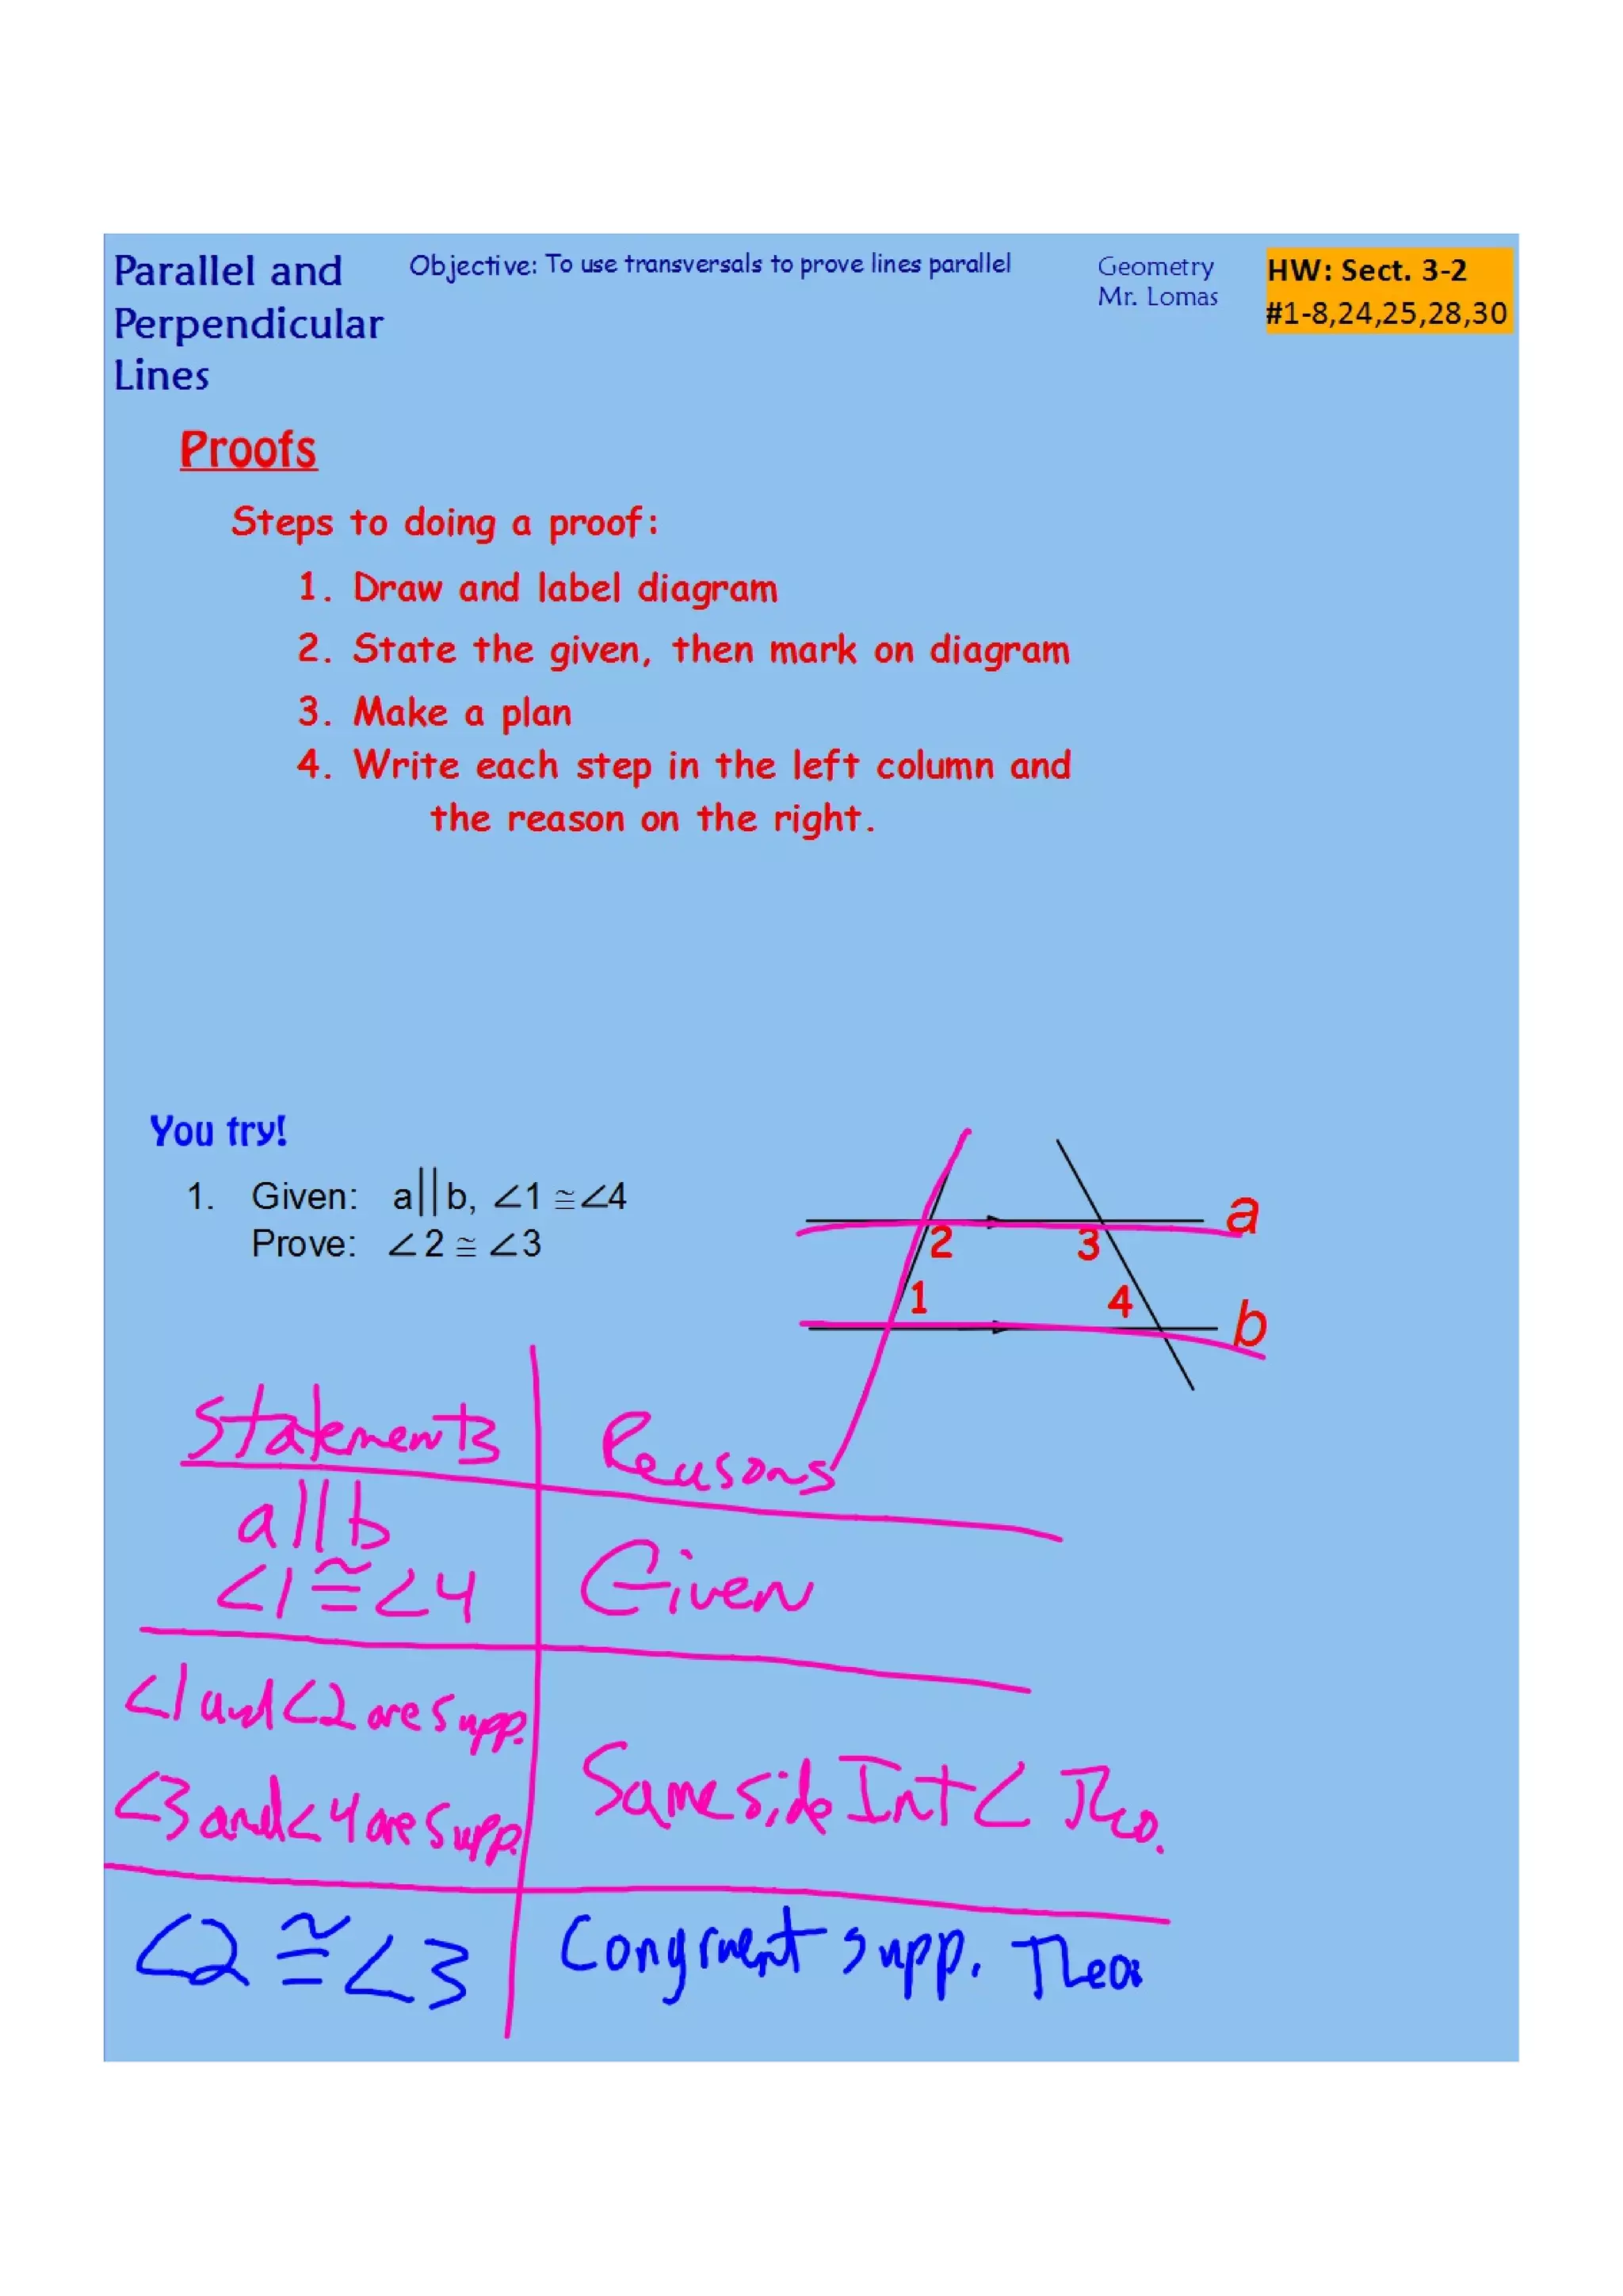 Parallel and
Perpendicular
Lines
Objective: To use transversals to prove lines parallel
Geometry
Mr. Lomas
HW: Sect. 3-2
#1-8,24,25,28,30
Proofs
Steps to doing a proof:
1. Draw and label diagram
2. State the given, then mark on diagram
3. Make a plan
4. Write each step in the left column and
the reason on the right.
You try!
1. Given: a||b, ∠1 ≅ ∠4
Prove: ∠2 ≅ ∠3
a
2 3
1 4
b
Statements Reasons
a||b
∠1 ≅ ∠4 Given
∠1 and ∠2 are supp.
∠3 and ∠4 are supp. Same side Int ∠ Theo.
∠2 ≅ ∠3 Congruent supp. Theo.